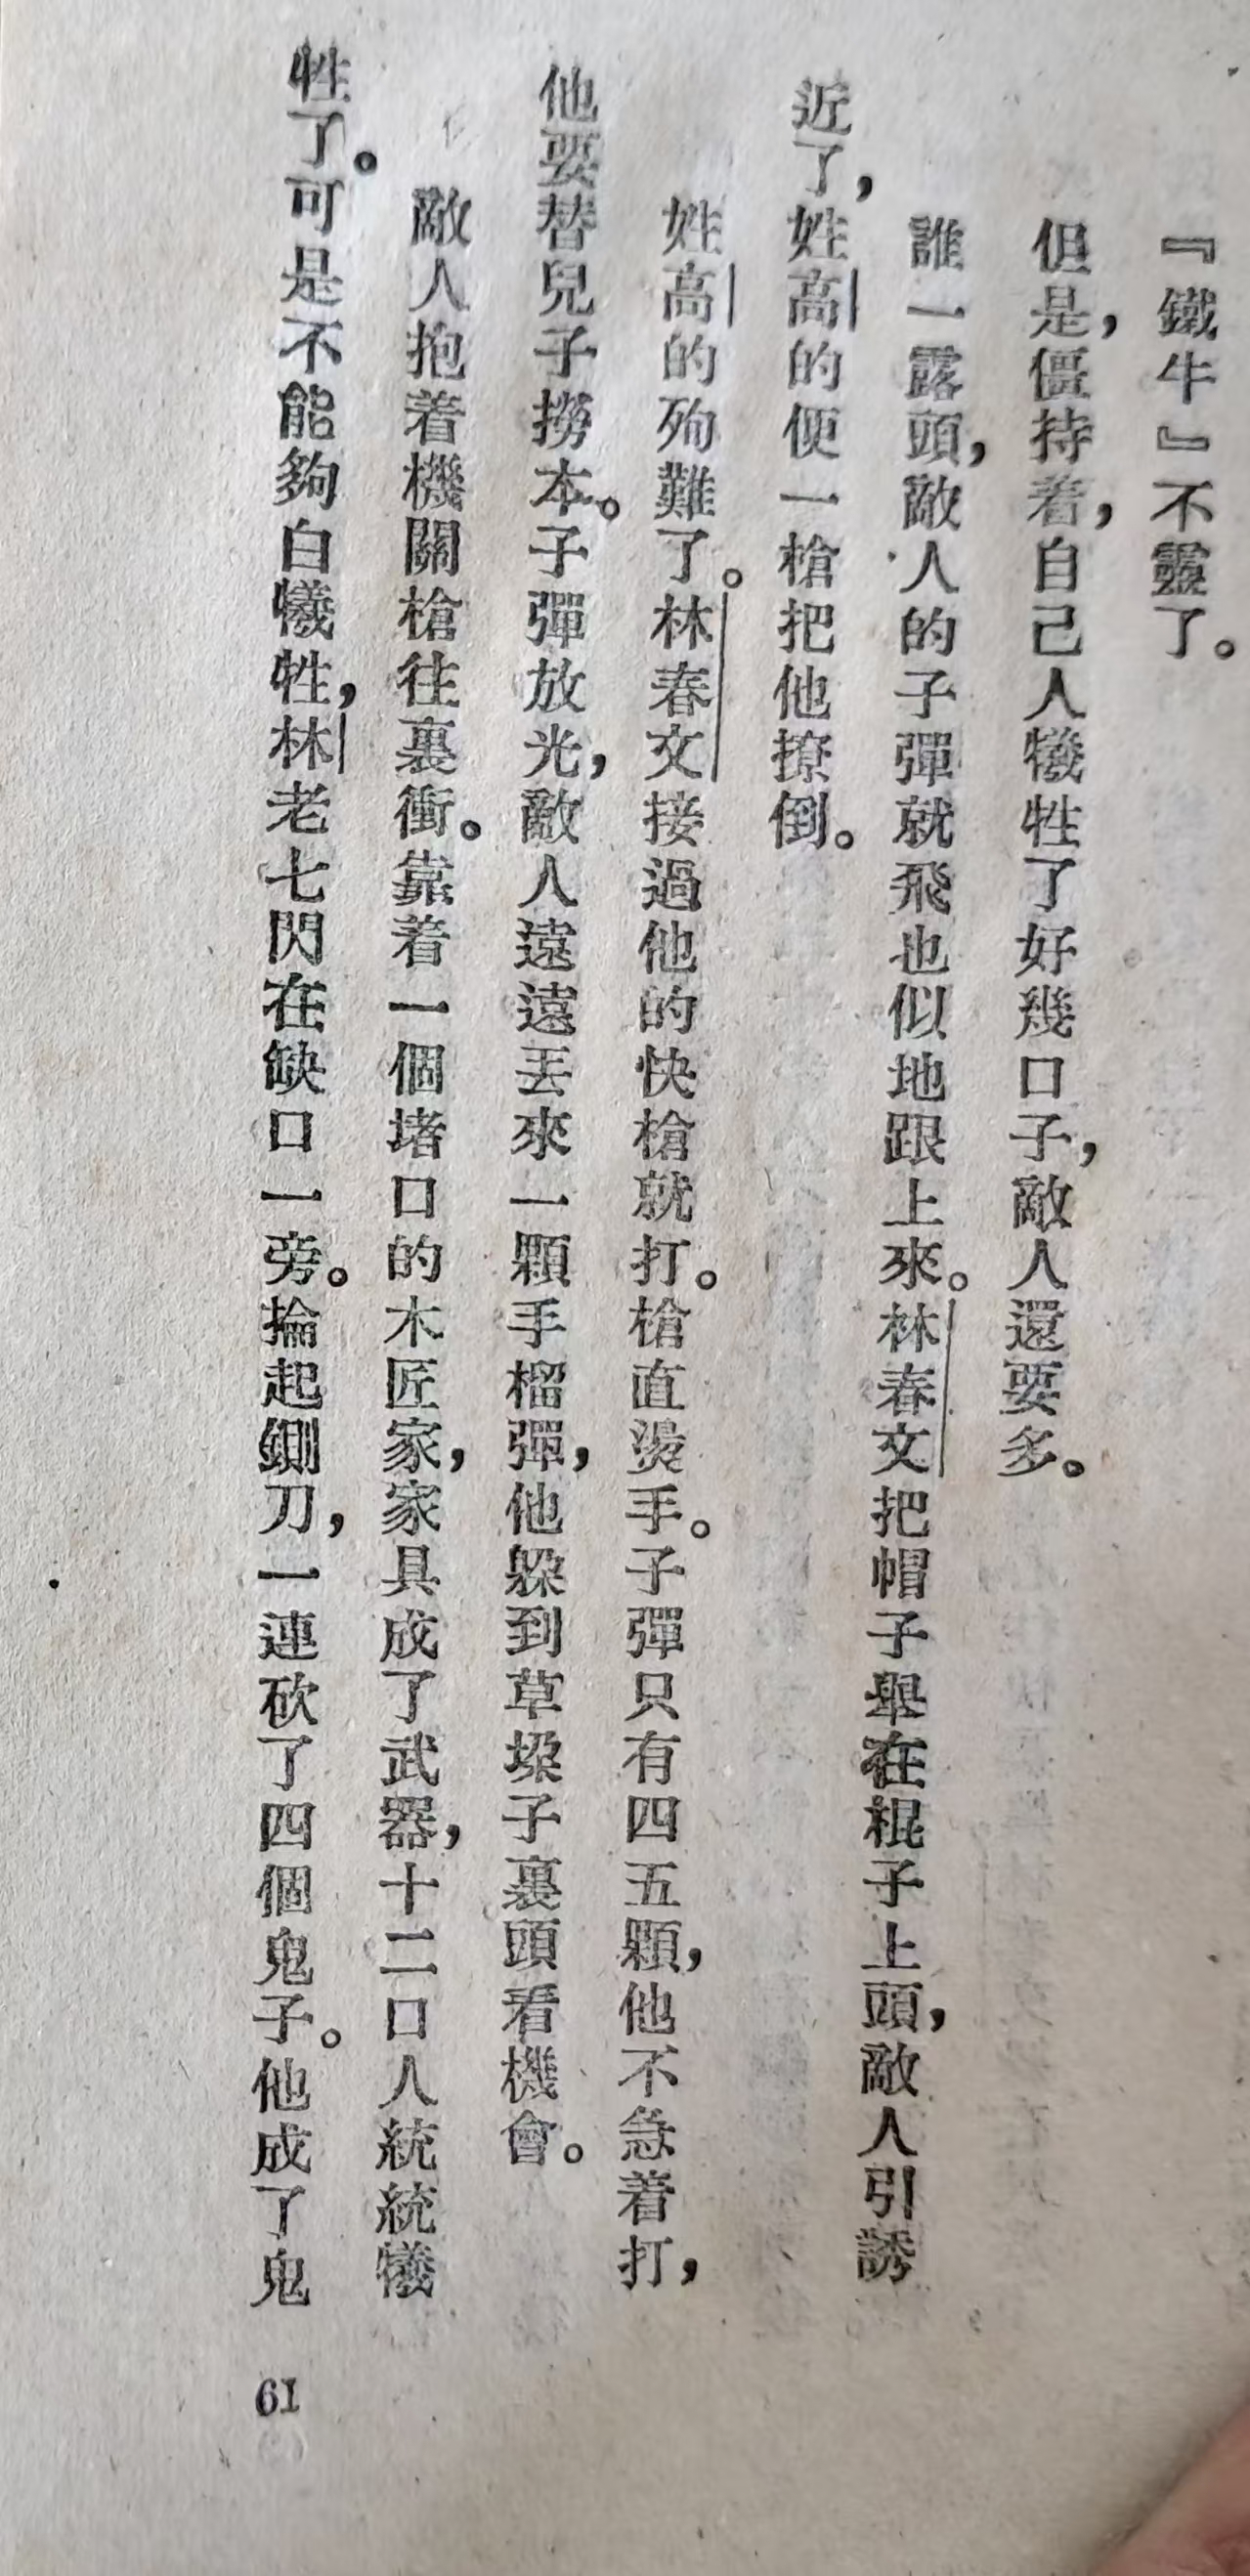 『鐵牛』不靈了。
但是，僵持着，自己人犧牲了好幾口子，敵人還要多。
誰一露頭，敵人的子彈就飛也似地跟上來。林春文把帽子舉在棍子上頭，敵人引誘
近了，姓高的便一槍把他撩倒。
姓高的殉難了。林春文接過他的快槍就打。槍直燙手。子彈只有四五顆，他不急着打，
他要替兒子撈本。子彈放光，敵人遠遠丟來一顆手榴彈，他躲到草垛子裏頭看機會。
敵人抱着機關槍往裏衝。靠着一個堵口的木匠家，家具成了武器，十二口人統統犧
牲了。可是不能夠白犧牲，林老七閃在缺口一旁。掄起鍘刀，一連砍了四個鬼子。他成了鬼
61